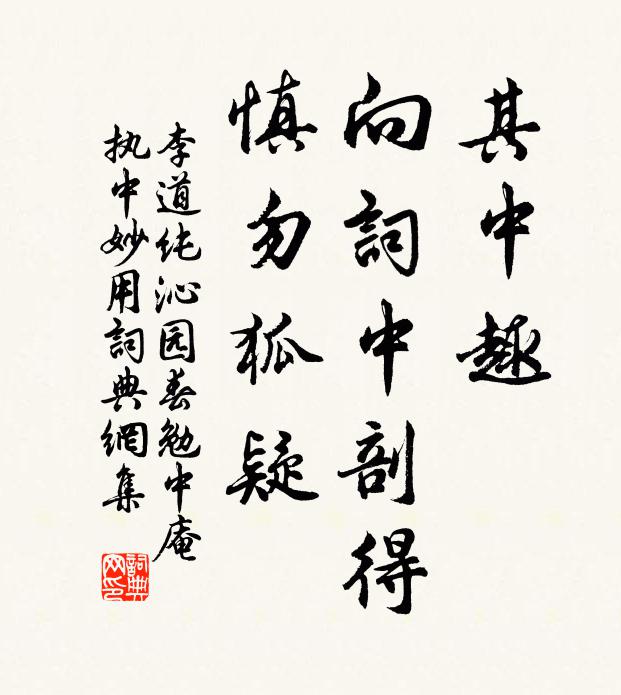 其中趣
向詞中剖得
慎勿狐疑
李道纯沁园春勉中庵
执中妙用詞典網集
詞典
网印